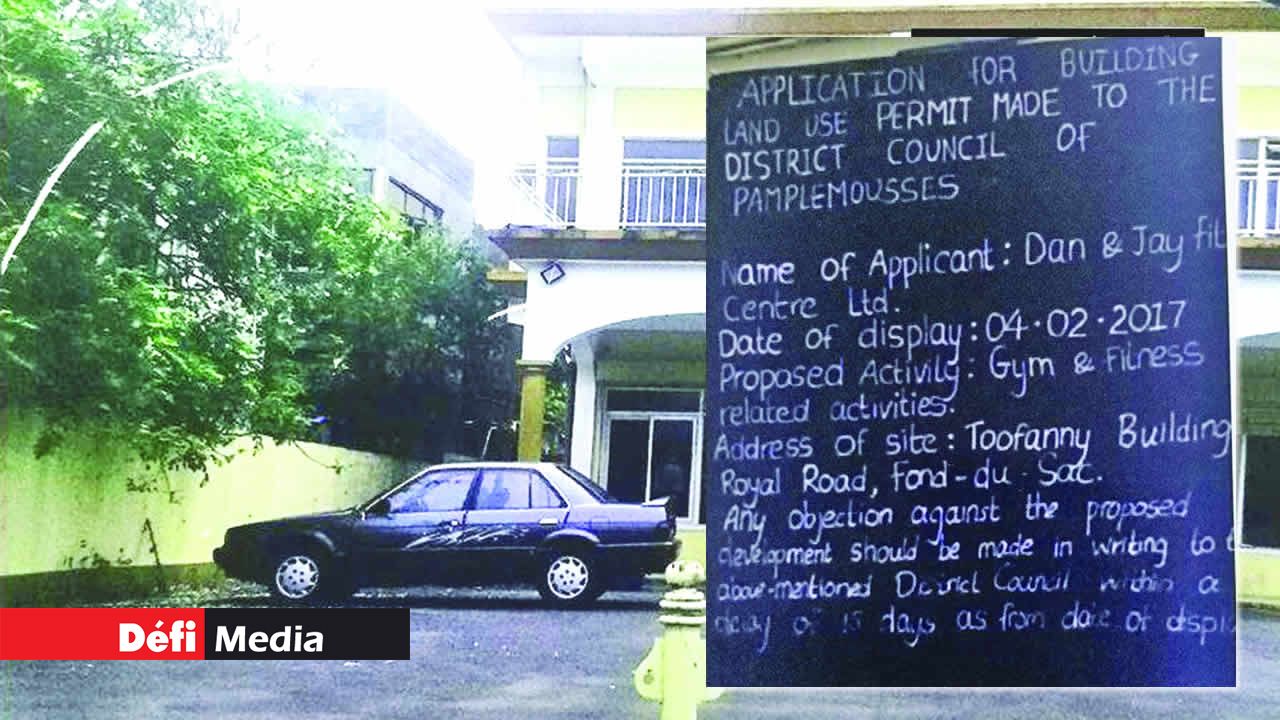 APPLICATION FOR BUILDING
LAND USE PERMIT MADE TO THE
DISTRICT COUNCIL OF
PAMPLEMOUSSES
Name of Applicant: Dan & Jay fit
Centre Ltd.
Date of display: 04.02.2017
Proposed Activity: Gym & Fitness
related activities.
Address of site: Toofanny Building
Royal Road, Fond-du-Sac.
Any objection against the proposed
development should be made in writing to t
above-mentioned District Council within a
delay of 15 days as from date of displ
Défi Media